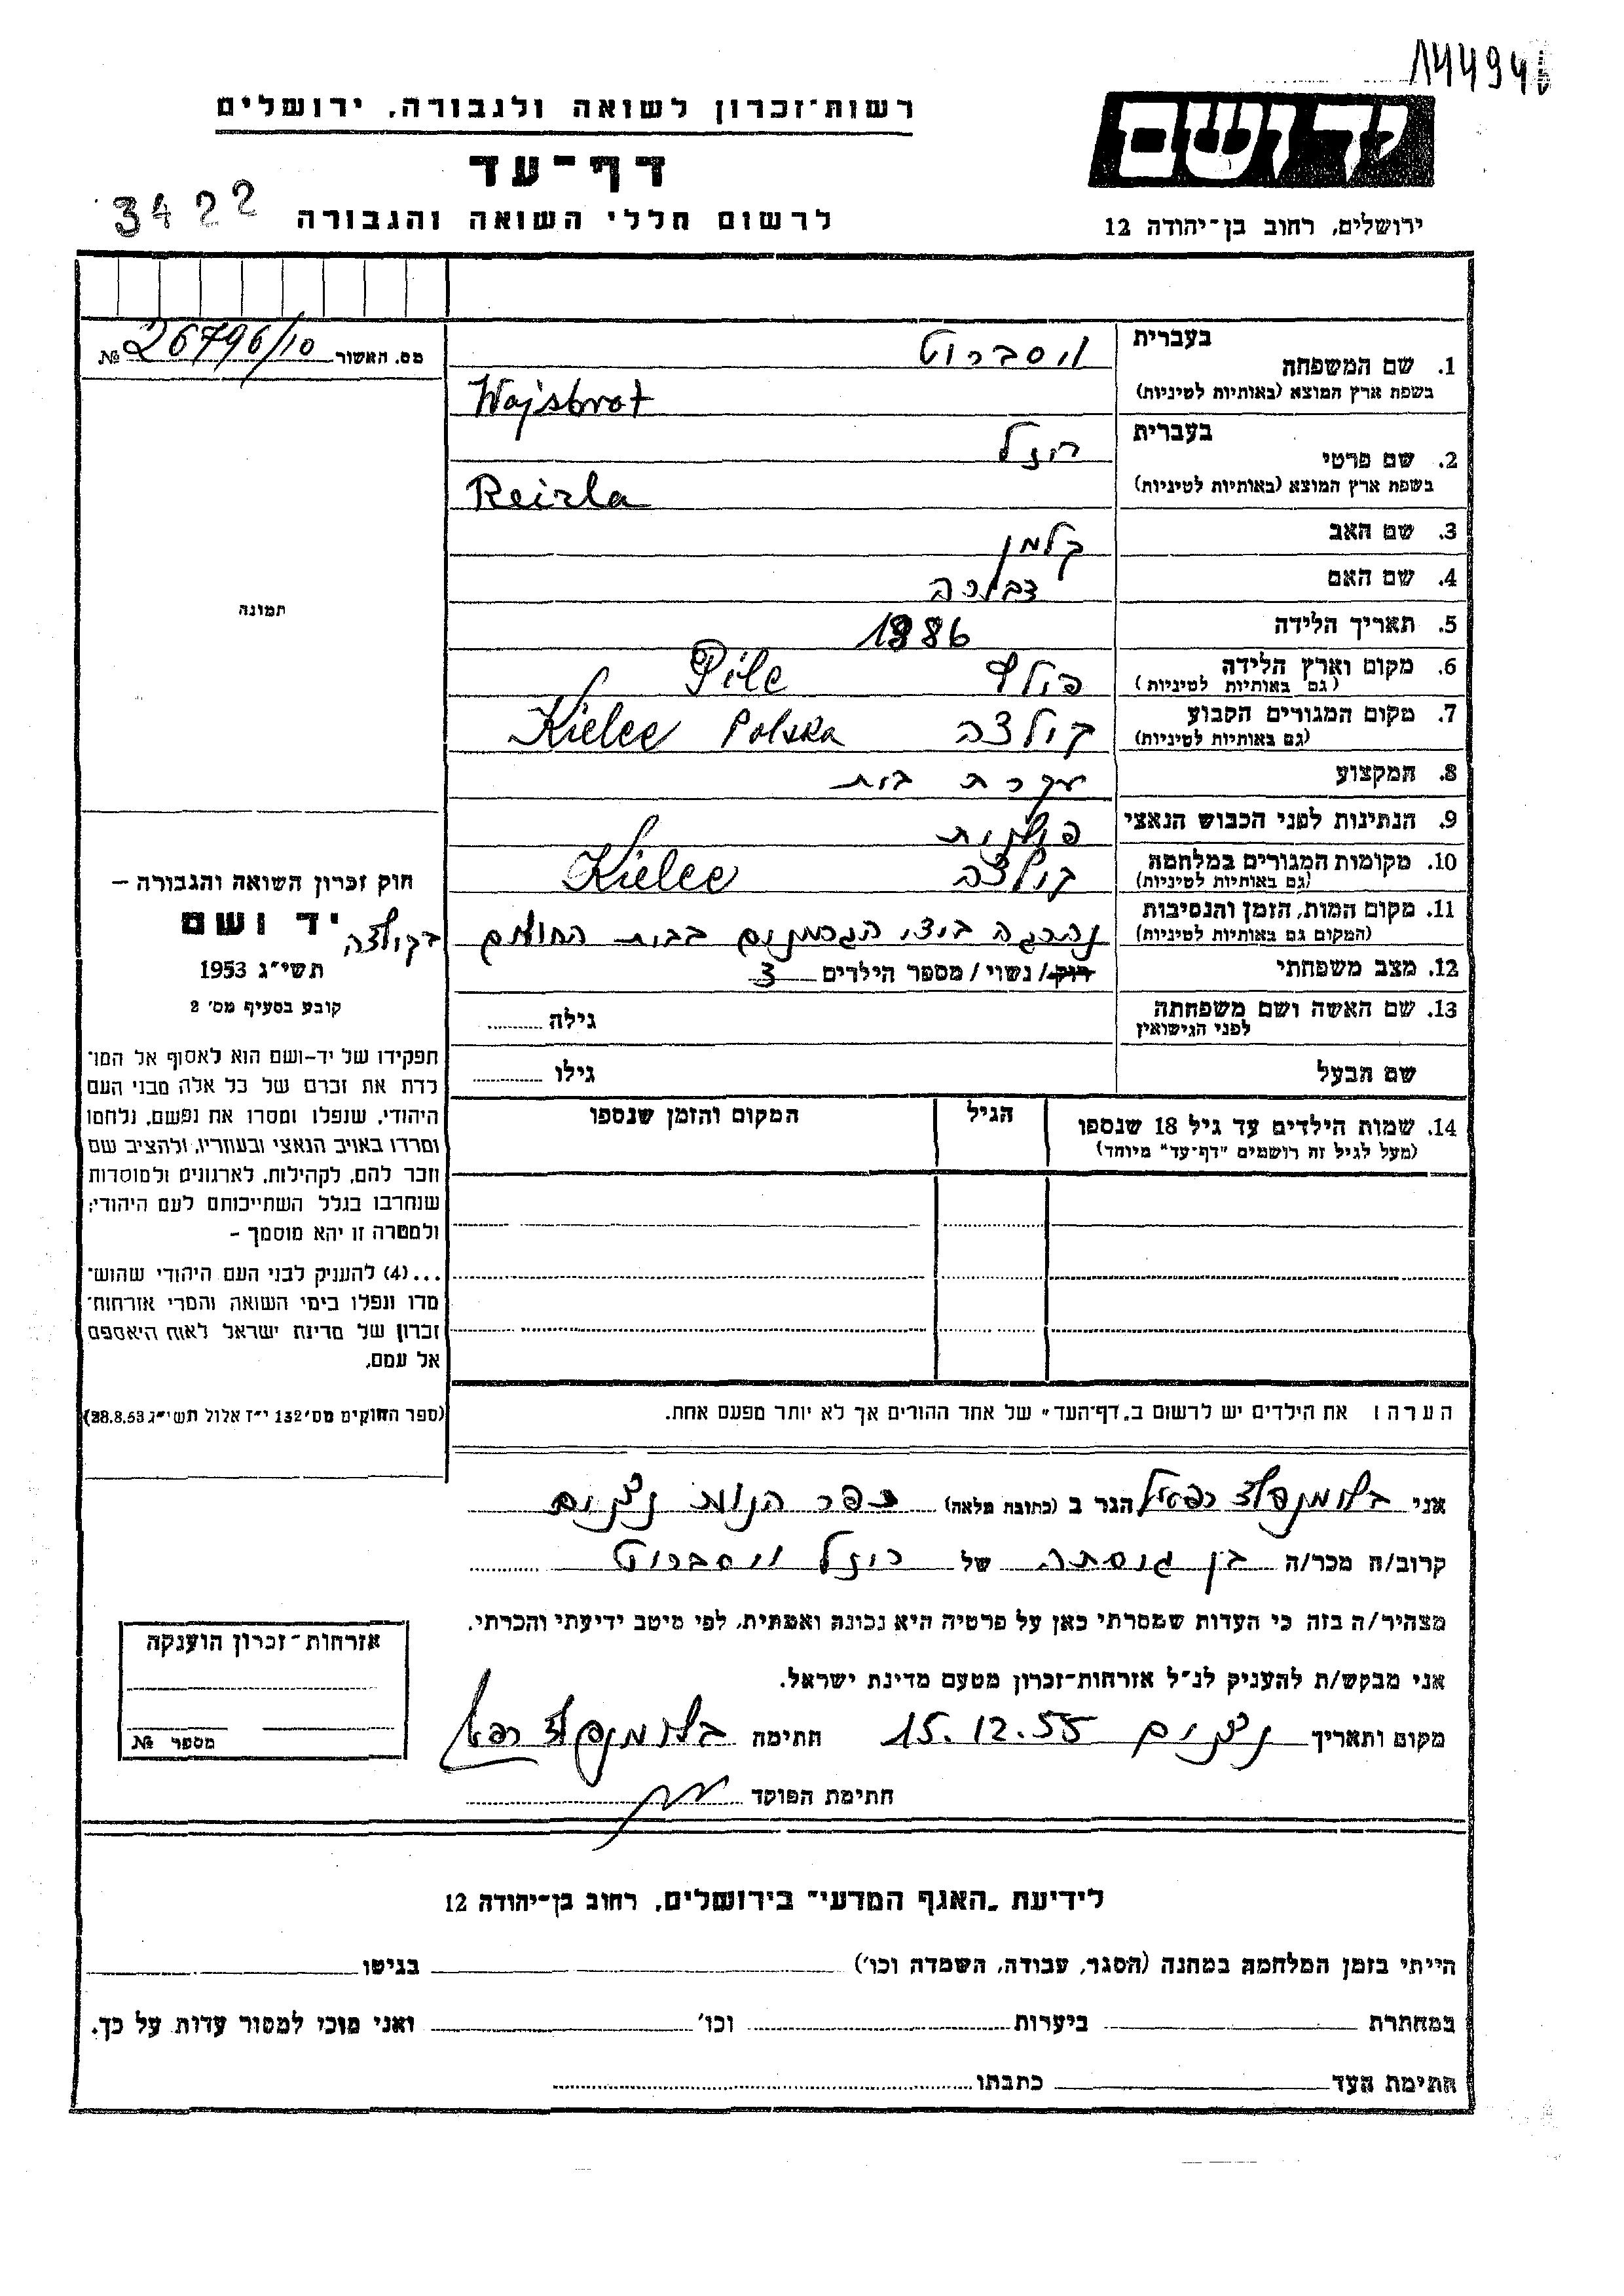 144946
רשות־זכרון לשואה ולגבורה, ירושלים
דף־עד
לרשום חללי השואה והגבורה
3422
ידושם
ירושלים, רחוב בן־יהודה 12
מס. האשור 26796/10 №
בעברית
1. שם המשפחה ויסברוט
בשפת ארץ המוצא (באותיות לטיניות) Wajsbrot
בעברית
2. שם פרטי ריזל
בשפת ארץ המוצא (באותיות לטיניות) Reizla
3. שם האב קלמן
4. שם האם
5. תאריך הלידה 1886
6. מקום וארץ הלידה Pile
(גם באותיות לטיניות)
7. מקום המגורים הקבוע קילצה Kielce Polska
(גם באותיות לטיניות)
8. המקצוע עקרת בית
9. הנתינות לפני הכבוש הנאצי פולנית
10. מקומות המגורים במלחמה קילצה Kielce
(גם באותיות לטיניות)
11. מקום המות, הזמן והנסיבות נהרגה בידי הגרמנים בבית החולים בקילצה
(המקום גם באותיות לטיניות)
12. מצב משפחתי רוק/ נשוי/ מספר הילדים 3
13. שם האשה ושם משפחתה גילה
לפני הנישואין
שם הבעל גילו
14. שמות הילדים עד גיל 18 שנספו הגיל המקום והזמן שנספו
(מעל לגיל זה רושמים "דף־עד" מיוחד)
תמונה
חוק זכרון השואה והגבורה –
יד ושם
תשי"ג 1953
קובע בסעיף מס' 2
תפקידו של יד-ושם הוא לאסוף אל המו־
לדת את זכרם של כל אלה מבני העם
היהודי, שנפלו ומסרו את נפשם, נלחמו
ומרדו באויב הנאצי ובעוזריו, ולהציב שם
וזכר להם, לקהילות, לארגונים ולמוסדות
שנחרבו בגלל השתייכותם לעם היהודי;
ולמטרה זו יהא מוסמך –
...(4) להעניק לבני העם היהודי שהוש־
מדו ונפלו בימי השואה והמרי אזרחות־
זכרון של מדינת ישראל לאות היאספם
אל עמם.
(ספר החוקים מס' 132 י"ז אלול תשי"ג 28.8.53)
הערה: את הילדים יש לרשום ב"דף־העד" של אחד ההורים אך לא יותר מפעם אחת.
אני בלומנפלד רפאל הגר ב (כתובת מלאה) כפר הנוער ניצנים
קרוב/ה מכר/ה של ריזל ויסברוט
מצהיר/ה בזה כי העדות שמסרתי כאן על פרטיה היא נכונה ואמתית, לפי מיטב ידיעתי והכרתי.
אני מבקש/ת להעניק לנ"ל אזרחות־זכרון מטעם מדינת ישראל.
מקום ותאריך ניצנים 15.12.55 חתימה בלומנפלד רפאל
חתימת הפוקד
אזרחות־זכרון הוענקה
מספר №
לידיעת "האגף המדעי" בירושלים, רחוב בן־יהודה 12
הייתי בזמן המלחמה במחנה (הסגר, עבודה, השמדה וכו') בגיטו
במחתרת ביערות וכו' ואני מוכן למסור עדות על כך.
חתימת העד כתבתו